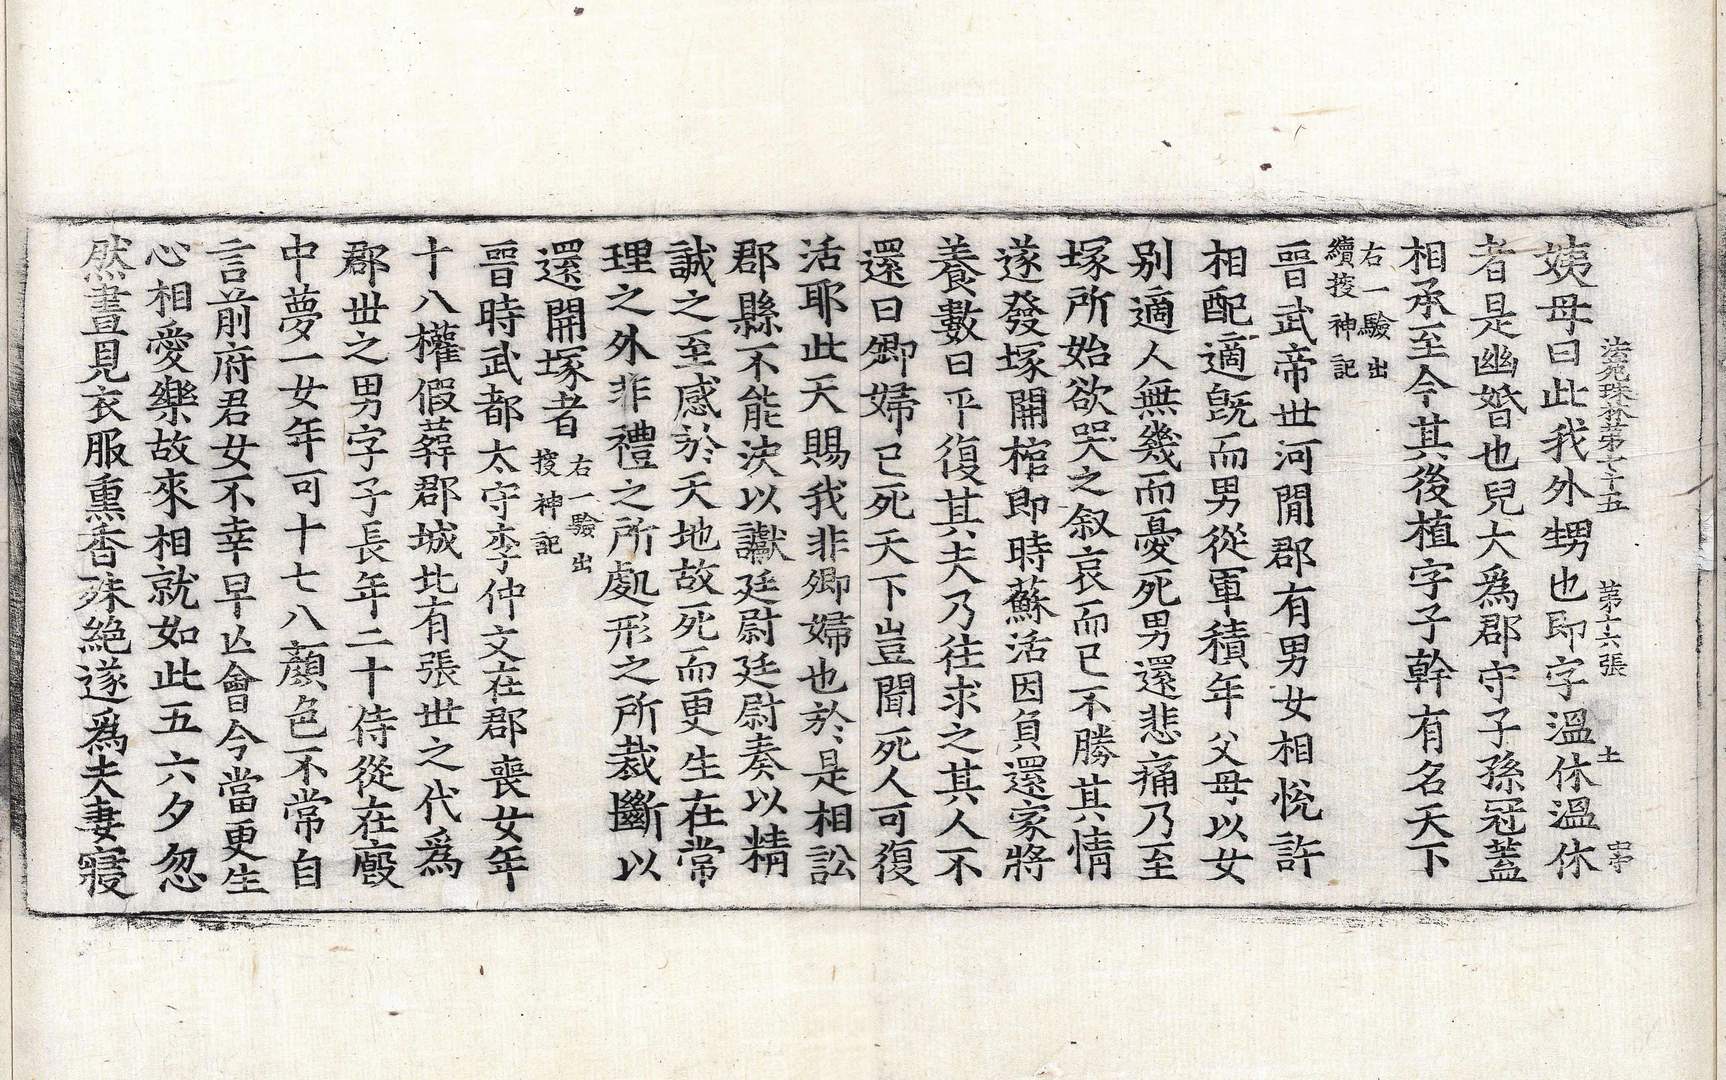 法苑珠林第七十五 第十六張 土 字
姨母曰此我外甥也即字溫休溫休
者是幽婚也兒大爲郡守子孫冠蓋
相承至今其後植字子幹有名天下
右一驗出
續搜神記
晉武帝世河閒郡有男女相悅許
相配適旣而男從軍積年父母以女
別適人無幾而憂死男還悲痛乃至
塚所始欲哭之叙哀而已不勝其情
遂發塚開棺即時蘇活因負還家將
養數日平復其夫乃往求之其人不
還曰卿婦已死天下豈聞死人可復
活耶此天賜我非卿婦也於是相訟
郡縣不能決以讞廷尉廷尉奏以精
誠之至感於天地故死而更生在常
理之外非禮之所處形之所裁斷以
還開塚者
右一驗出
搜神記
晉時武都太守李仲文在郡喪女年
十八權假葬郡城北有張世之代爲
郡世之男字子長年二十侍從在廄
中夢一女年可十七八顏色不常自
言前府君女不幸早亾會今當更生
心相愛樂故來相就如此五六夕忽
然晝見衣服熏香殊絶遂爲夫妻寢